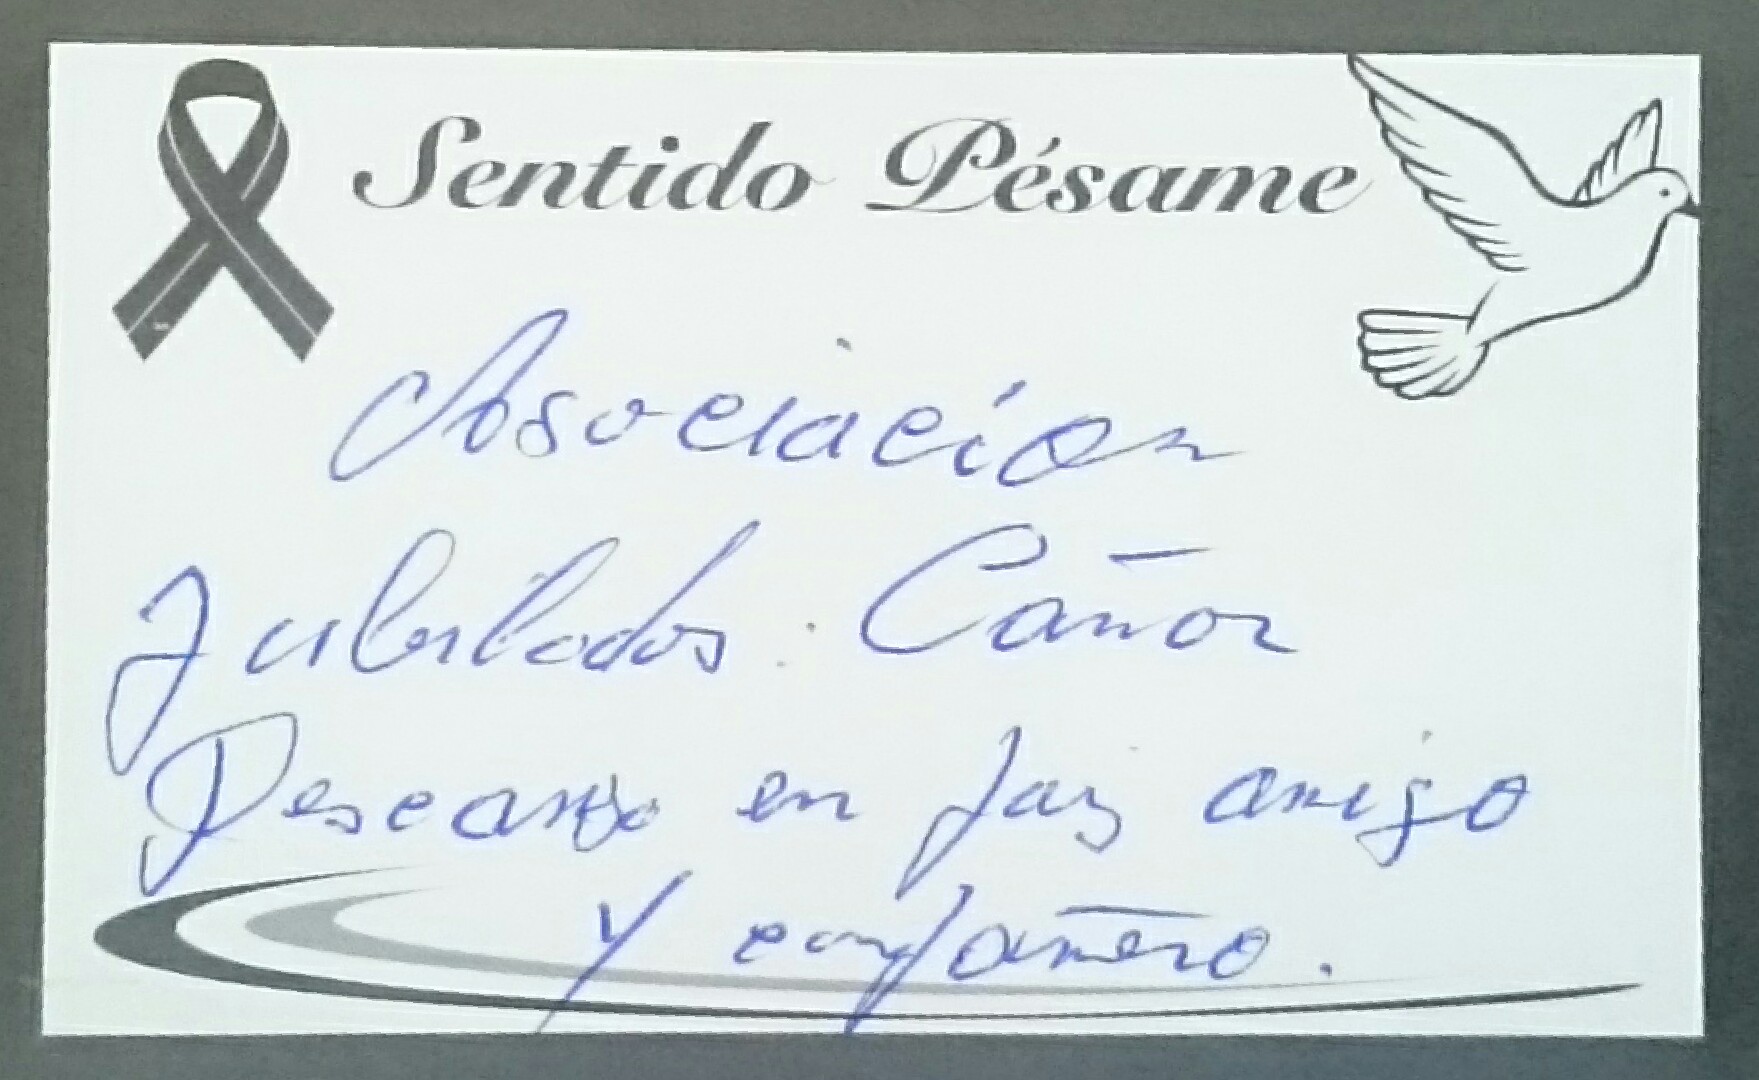 Sentido Pésame
Asociación
Jubilados. Cañor
Descanso en paz amigo
y compañero.